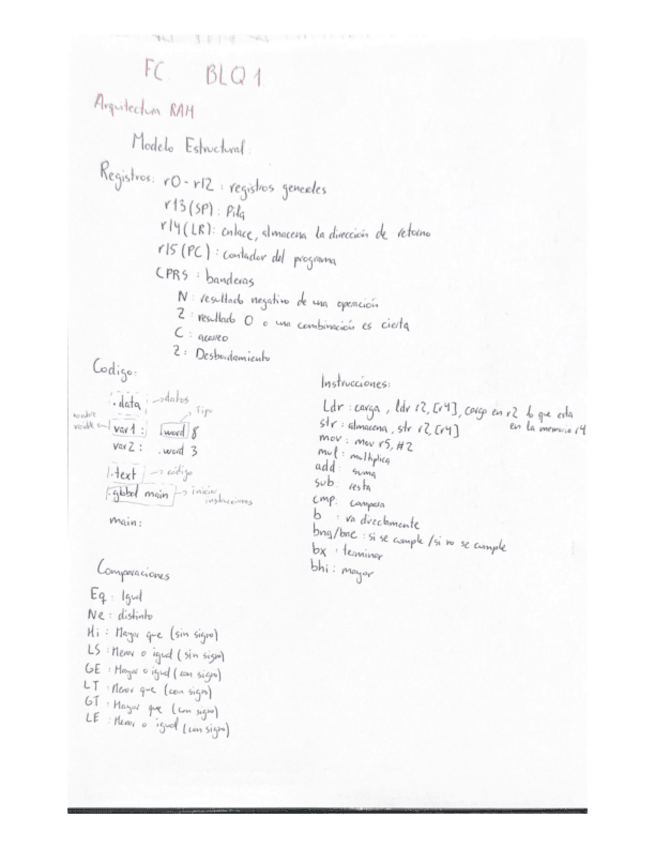 FC. BLQ1
Arquitectura RAM
Modelo Estructural:
Registros: r0-r12 : registros generales
r13(SP): Pila
r14(LR): enlace, almacena la dirección de retorno
r15(PC): contador del programa
CPRS : banderas
N: resultado negativo de una operación
Z: resultado 0 o una combinación es cierta
C: acarreo
Z: Desbordamiento
Codigo:
.data → datos
nombre
Tipo
var1: .word 8
var2: .word 3
.text → código
.global main → iniciar
instrucciones
main:
Comparaciones
Eq: Igual
Ne: distinto
Hi: Mayor que (sin signo)
LS: Menor o igual (sin signo)
GE: Mayor o igual (con signo)
LT: Menor que (con signo)
GT: Mayor que (con signo)
LE: Menor o igual (con signo)
Instrucciones:
Ldr: carga, ldr r2,[r4], cargo en r2 lo que esta
en la memoria r4
str: almacena, str r2,[r4]
mov: mov r5,#2
mul: multiplica
add: suma
sub: resta
cmp: compara
b : va directamente
bng/bne: si se cumple/si no se cumple
bx : terminar
bhi: mayor